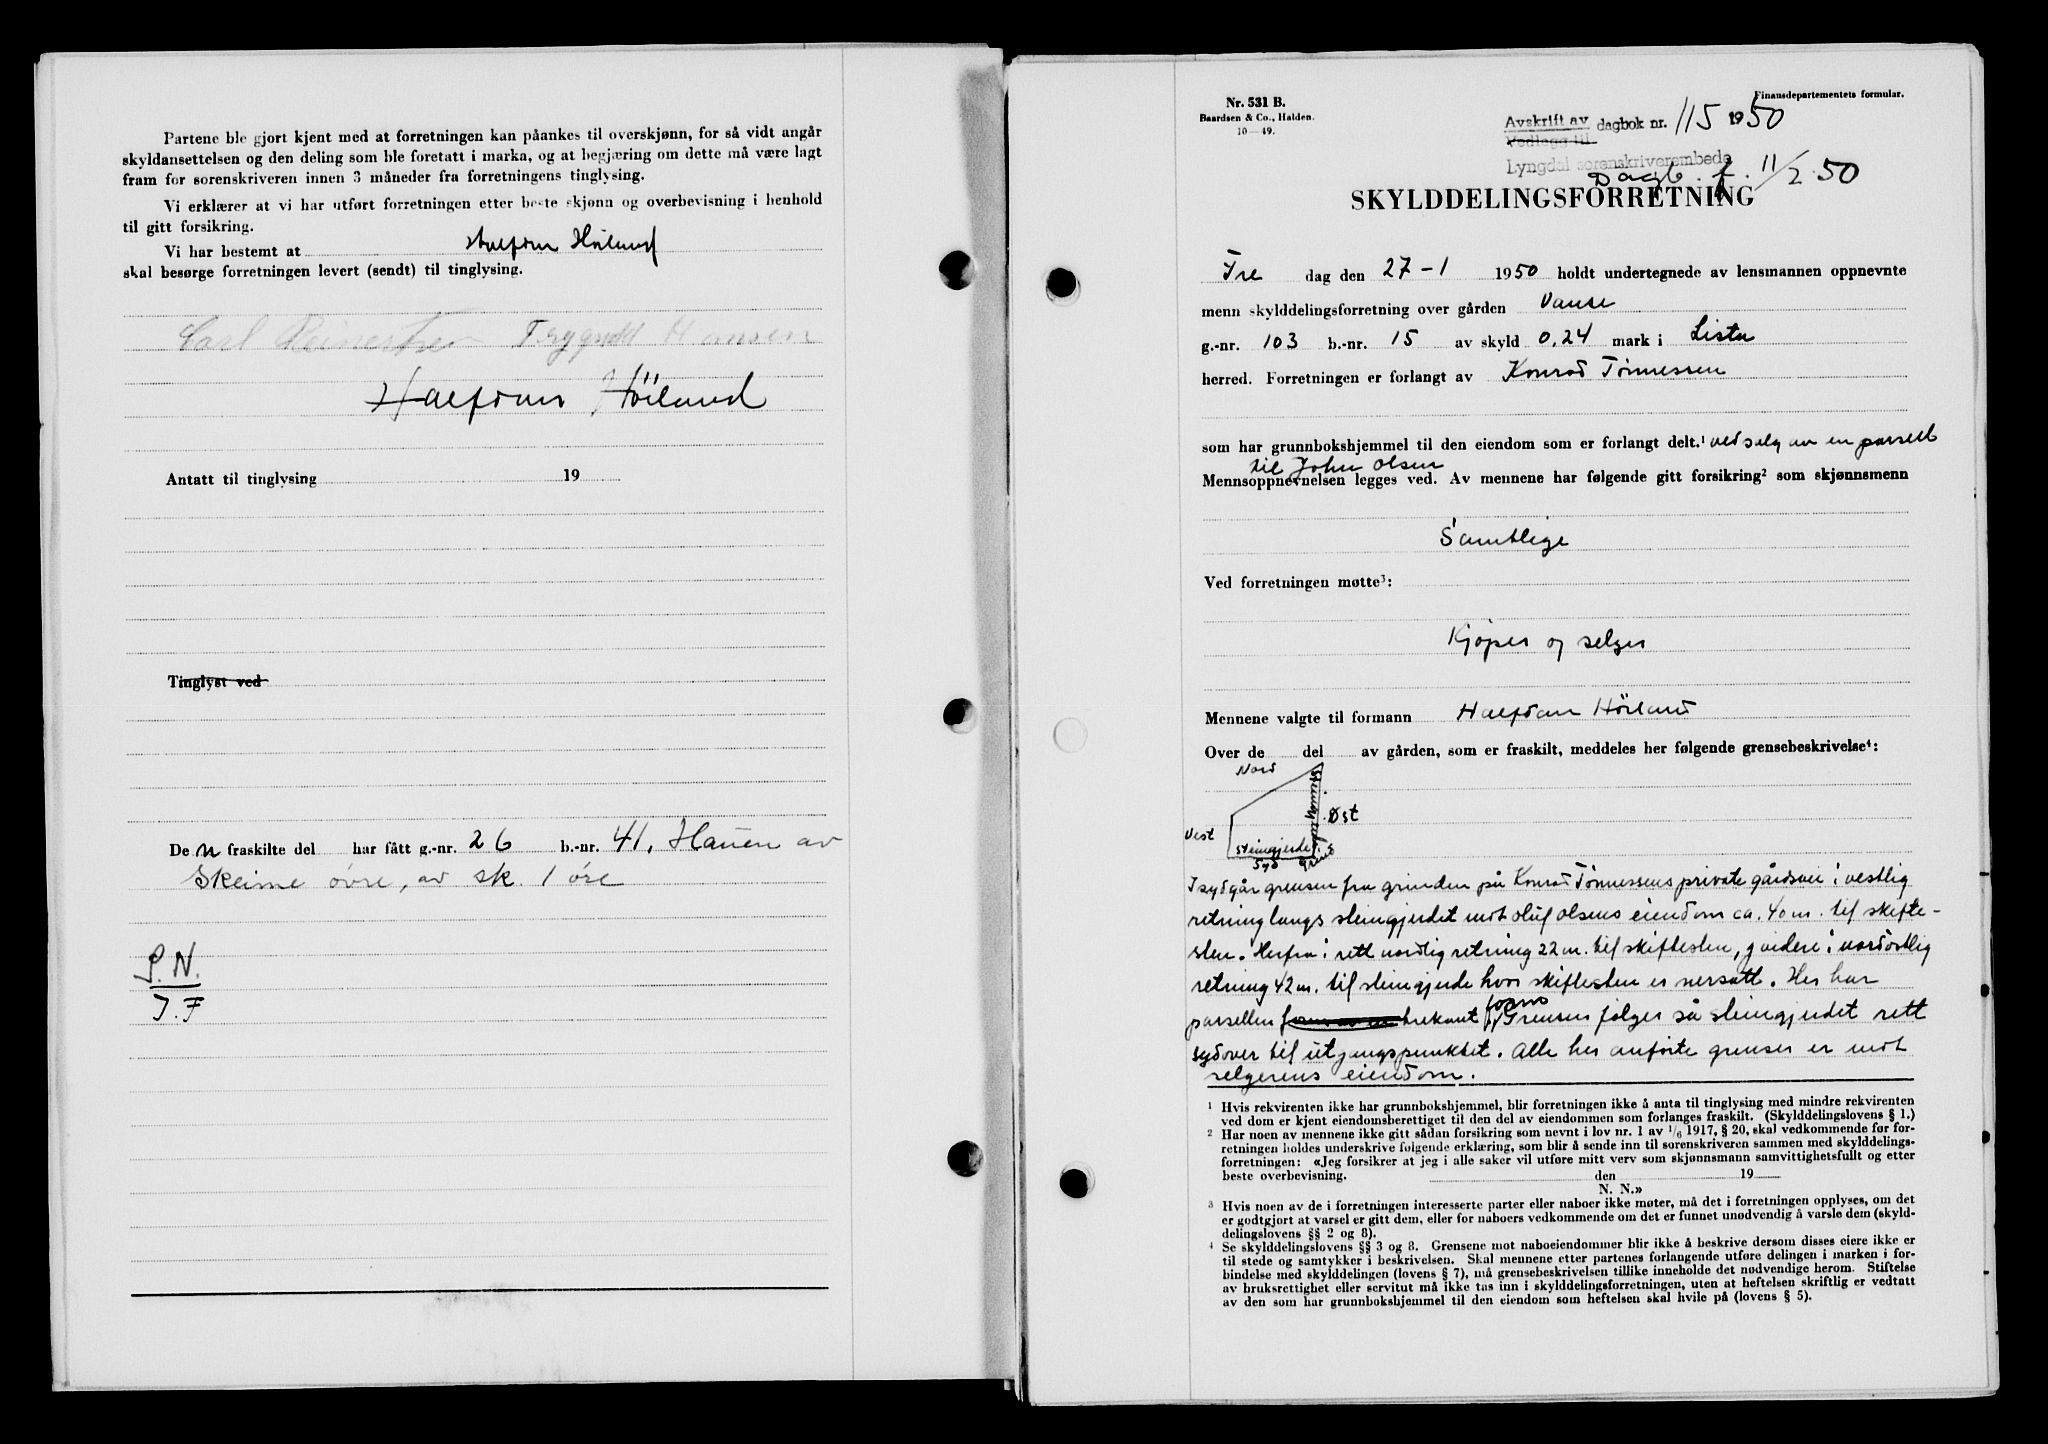 Partene ble gjort kjent med at forretningen kan påankes til overskjønn, for så vidt angår
skyldansettelsen og den deling som ble foretatt i marka, og at begjæring om dette må være lagt
fram for sorenskriveren innen 3 måneder fra forretningens tinglysing.
Vi erklærer at vi har utført forretningen etter beste skjønn og overbevisning i henhold
til gitt forsikring.
Vi har bestemt at Halfdan Høiland
skal besørge forretningen levert (sendt) til tinglysing.
Carl Reinertsen Hansen
Halfdan Höiland
Antatt til tinglysing 19
Tinglyst ved
De n fraskilte del har fått g.-nr. 26 b.-nr. 41, Hauen av
Skeime øvre, av sk. 1 øre
S. N.
J. F
Nr. 531 B.
Baardsen & Co., Halden.
10 — 49.
Finansdepartementets formular.
Avskrift av dagbok nr. 115 1950
Vedlegg til
Lyngdal sorenskriverembede
Dagb. f. 11/2 50
SKYLDDELINGSFORRETNING
Fre dag den 27-1 1950 holdt undertegnede av lensmannen oppnevnte
menn skylddelingsforretning over gården Vanse
g.-nr. 103 b.-nr. 15 av skyld 0,24 mark i Lista
herred. Forretningen er forlangt av Konrad Tønnessen
som har grunnbokshjemmel til den eiendom som er forlangt delt.¹ ved salg av en parsell
til John Olsen
Mennsoppnevnelsen legges ved. Av mennene har følgende gitt forsikring² som skjønnsmenn
Samtlige
Ved forretningen møtte³:
Kjøper og selger
Mennene valgte til formann Halfdan Höiland
Over de del av gården, som er fraskilt, meddeles her følgende grensebeskrivelse⁴:
Nord
Steingjerde
Øst
Vest
steingjerde
Syd
I syd går grensen fra grinden på Konrad Tønnessens private gårdsvei i vestlig
retning langs steingjerdet mot Oluf Olsens eiendom ca. 40 m. til skifte-
sten. Herfra i rett nordlig retning 22 m. til skiftesten, g videre i nordøstlig
retning 42 m. til steingjerde hvor skiftesten er nersatt. Her har
parsellen trekant form. Grensen følger så steingjerdet rett
sydover til utgangspunktet. Alle her anførte grenser er mot
selgerens eiendom.
¹ Hvis rekvirenten ikke har grunnbokshjemmel, blir forretningen ikke å anta til tinglysing med mindre rekvirenten
ved dom er kjent eiendomsberettiget til den del av eiendommen som forlanges fraskilt. (Skylddelingslovens § 1.)
² Har noen av mennene ikke gitt sådan forsikring som nevnt i lov nr. 1 av 1/6 1917, § 20, skal vedkommende før for-
retningen holdes underskrive følgende erklæring, som blir å sende inn til sorenskriveren sammen med skylddelings-
forretningen: «Jeg forsikrer at jeg i alle saker vil utføre mitt verv som skjønnsmann samvittighetsfullt og etter
beste overbevisning. den 19
N. N.»
³ Hvis noen av de i forretningen interesserte parter eller naboer ikke møter, må det i forretningen opplyses, om det
er godtgjort at varsel er gitt dem, eller for naboers vedkommende om det er funnet unødvendig å varsle dem (skyld-
delingslovens §§ 2 og 8).
⁴ Se skylddelingslovens §§ 3 og 8. Grensene mot naboeiendommer blir ikke å beskrive dersom disses eiere ikke er
til stede og samtykker i beskrivelsen. Skal mennene etter partenes forlangende utføre delingen i marken i for-
bindelse med skylddelingen (lovens § 7), må grensebeskrivelsen tillike inneholde det nødvendige herom. Stiftelse
av bruksrettighet eller servitut må ikke tas inn i skylddelingsforretningen, uten at heftelsen skriftlig er vedtatt
av den som har grunnbokshjemmel til den eiendom som heftelsen skal hvile på (lovens § 5).